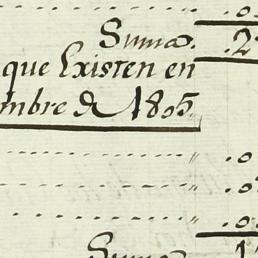 Suma. . 2
que Existen en
mbre de 1805
. 0
. 0
. 0
Suma